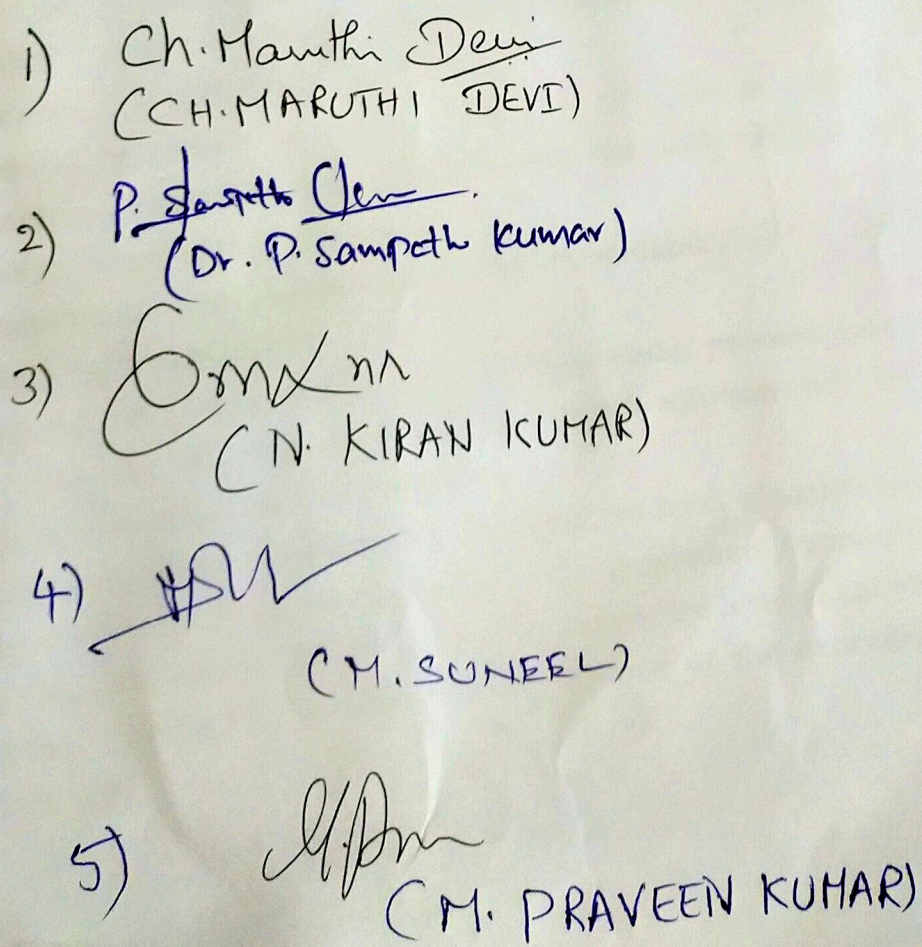 1) Ch. Maruthi Devi
(CH. MARUTHI DEVI)
2) P. Sampath
(Dr. P. Sampath Kumar)
3)
(N. KIRAN KUMAR)
4)
(M. SUNEEL)
5)
(M. PRAVEEN KUMAR)